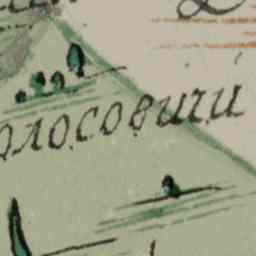 олосовичи